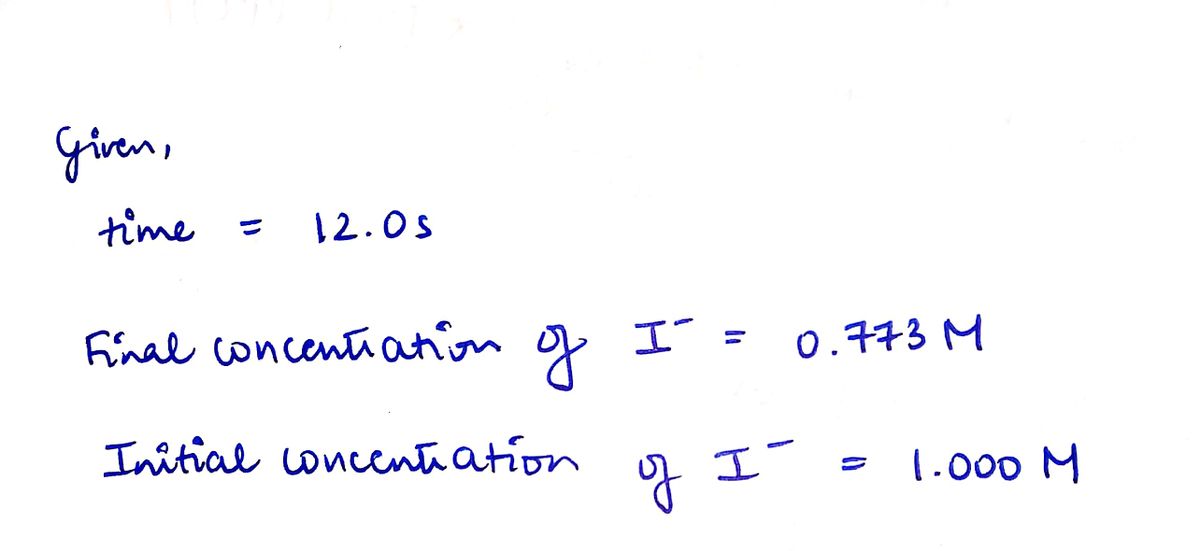 Given,
time = 12.0s
Final concentration of I⁻ = 0.773 M
Initial concentration of I⁻ = 1.000 M